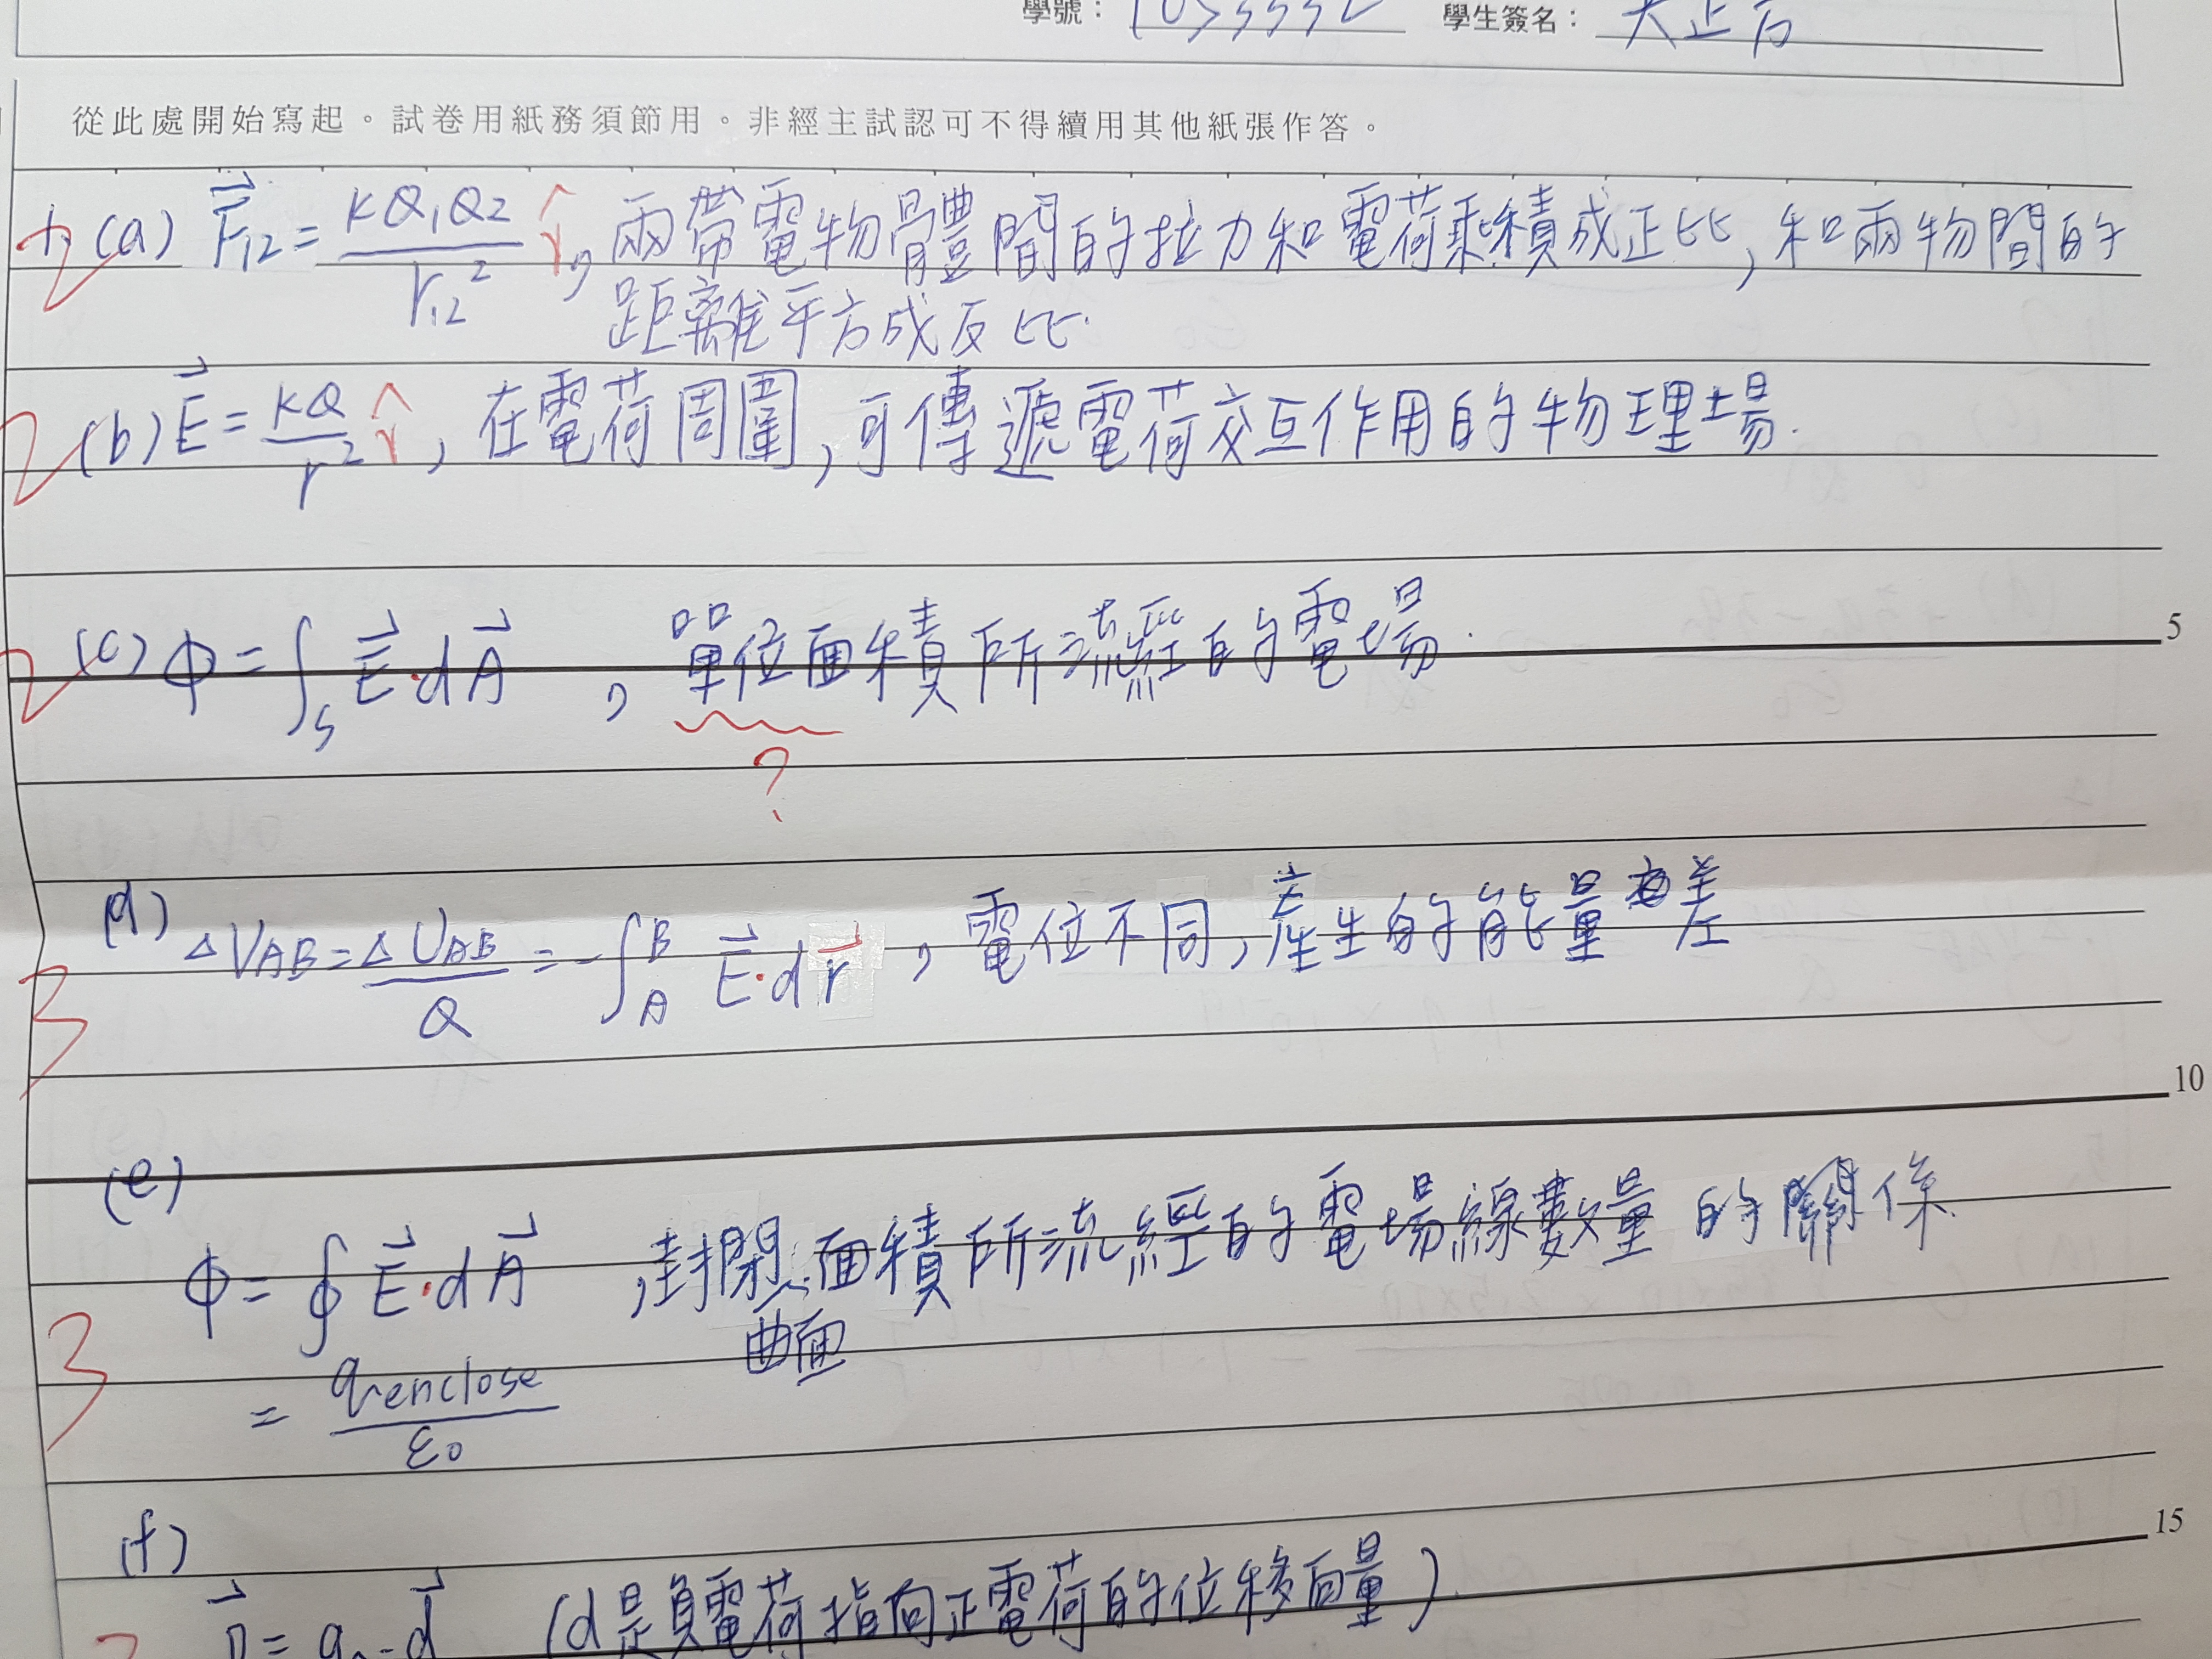 學號： 學生簽名：
從此處開始寫起。試卷用紙務須節用。非經主試認可不得續用其他紙張作答。
(a) F⃗₁₂ = KQ₁Q₂ / r₁₂² r̂, 兩帶電物體間的拉力和電荷乘積成正比, 和兩物間的
距離平方成反比.
2 (b) E⃗ = KQ / r² r̂, 在電荷周圍, 可傳遞電荷交互作用的物理場.
2 (c) Φ = ∫ₛ E⃗·dA⃗ , 單位面積所流經的電場. 5
?
(d) ΔV_AB = ΔU_AB / Q = -∫_A^B E⃗·dr⃗ , 電位不同, 產生的能量差
3
10
(e)
Φ = ∮ E⃗·dA⃗ , 封閉面積所流經的電場線數量的關係.
曲面
3
= q_enclose / ε₀
(f) 15
(d是負電荷指向正電荷的位移向量)